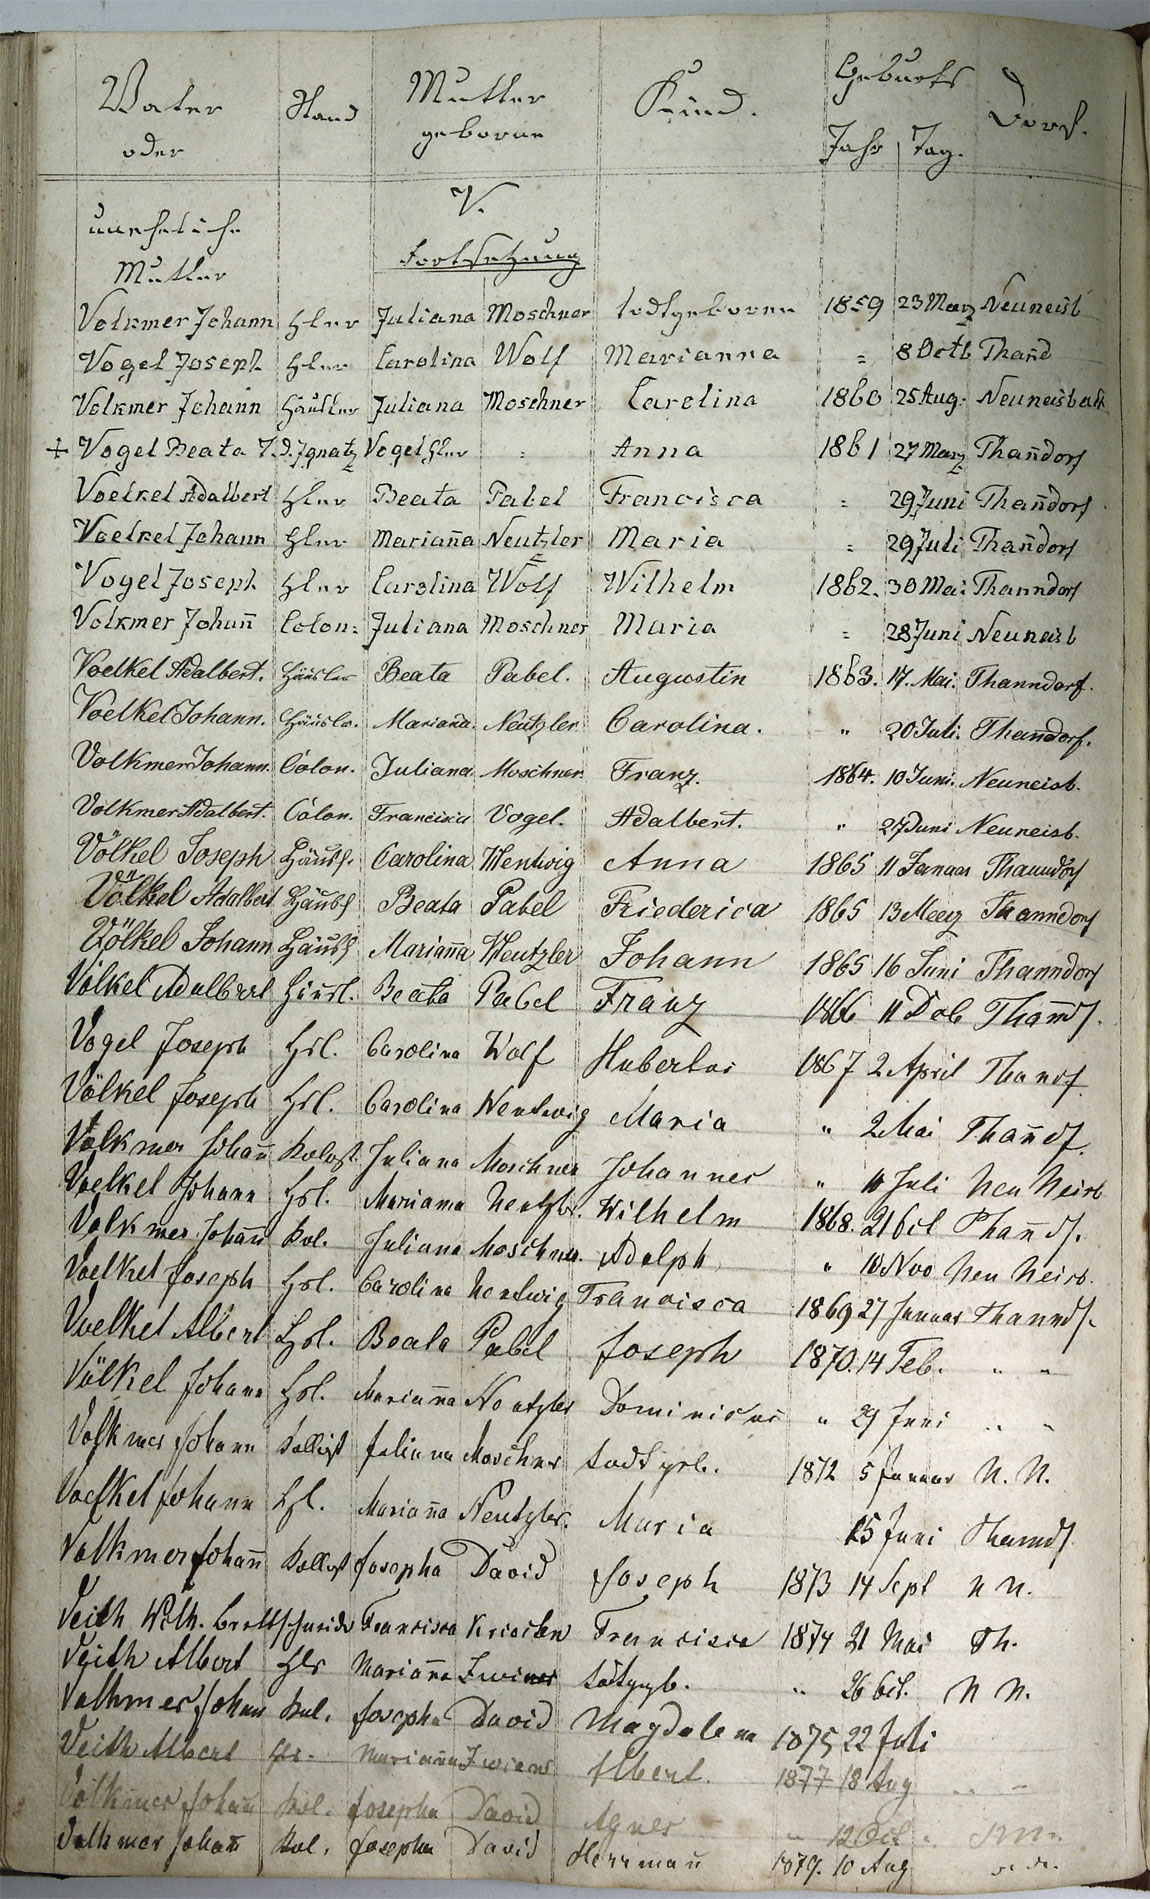 Vater Stand Mutter Kind. Geburts Dorf.
oder geborne Jahr Tag.
V.
uneheliche
Fortsetzung
Mutter
Volkmer Johann Hler Juliana Moschner todtgeboren 1859 23 Marz Neuneisb
Vogel Joseph Hler Carolina Wolf Marianna = 8 Octb Thañd
Volkmer Johann Häusler Juliana Moschner Carolina 1860 25 Aug. Neuneisbach
+ Vogel Beata T. d. Ignatz Vogel Hler Anna 1861 27 Marz Thañdorf
Voelkel Adalbert Hler Beata Pabel Francisca = 29 Juni Thañdorf
Voelkel Johann Hler Mariaña Neutzler Maria = 29 Juli Thañdorf
Vogel Joseph Hler Carolina Wolf Wilhelm 1862. 30 Mai Thanndorf
Volkmer Johañ Colon: Juliana Moschner Maria = 28 Juni Neuneisb
Voelkel Adalbert. Häusler Beata Pabel. Augustin 1863. 17. Mai. Thanndorf.
Voelkel Johann. Häusler. Mariana. Neutzler Carolina. " 20 Juli. Thañdorf.
Volkmer Johann. Colon. Juliana Moschner Franz. 1864. 10 Juni. Neuneisb.
Volkmer Adalbert. Colon. Francisca Vogel. Adalbert. " 27 Juni Neuneisb.
Völkel Joseph Häusl. Carolina Hentwig Anna 1865 11 Januar Thanndorf
Völkel Adalbert Häusl Beata Pabel Friederica 1865 13 Meerz Thanndorf
Völkel Johann Häusl Mariaña Neutzler Johann 1865 16 Juni Thanndorf
Völkel Adalbert Häusl. Beata Pabel Franz 1866 11 Dcb Thañdf.
Vogel Joseph Hsl. Carolina Wolf Hubertus 1867 2 April Thandf
Völkel Joseph Hsl. Carolina Hentwig Maria " 2 Mai Thañdf.
Volkmer Johañ Kolost. Juliana Moschner Johannes " 11 Juli Neu Neisb
Voelkel Johann Hsl. Mariana Neutzler. Wilhelm 1868. 21 Oct Thañdf.
Volkmer Johañ Kol. Juliana Moschner. Adolph. " 10 Nov Neu Neisb.
Voelkel Joseph Hsl. Carolina Hentwig Francisca 1869 27 Januar Thanndf.
Voelkel Albert Hsl. Beata Pabel Joseph 1870. 14 Feb. " "
Völkel Johann Hsl. Mariaña Neutzler Dominicus " 29 Juni " "
Volkmer Johann Kollist Juliana Moschner todtgeb. 1872 5 Januar N. N.
Voelkel Johann Hsl. Mariaña Neutzler. Maria 15 Juni Thanndf
Volkmer Johañ Kollist Josepha David Joseph 1873 14 Sept N N.
Veith Wilh. Brettschneider Francisca Francisca 1874 21 Mai Th.
Veith Albert Hlr Mariaña todtgeb. " 26 Oct. N N.
Volkmer Johan Kol. Josepha David Magdalena 1875 22 Juli
Veith Albert Hlr. Mariaña Albert. 1877 18 Aug " "
Volkmer Johañ Kol. Josepha David Agnes " 12 Oct. N N.
Volkmer Johañ Kol. Josepha David Herrmañ 1879. 10 Aug N. N.